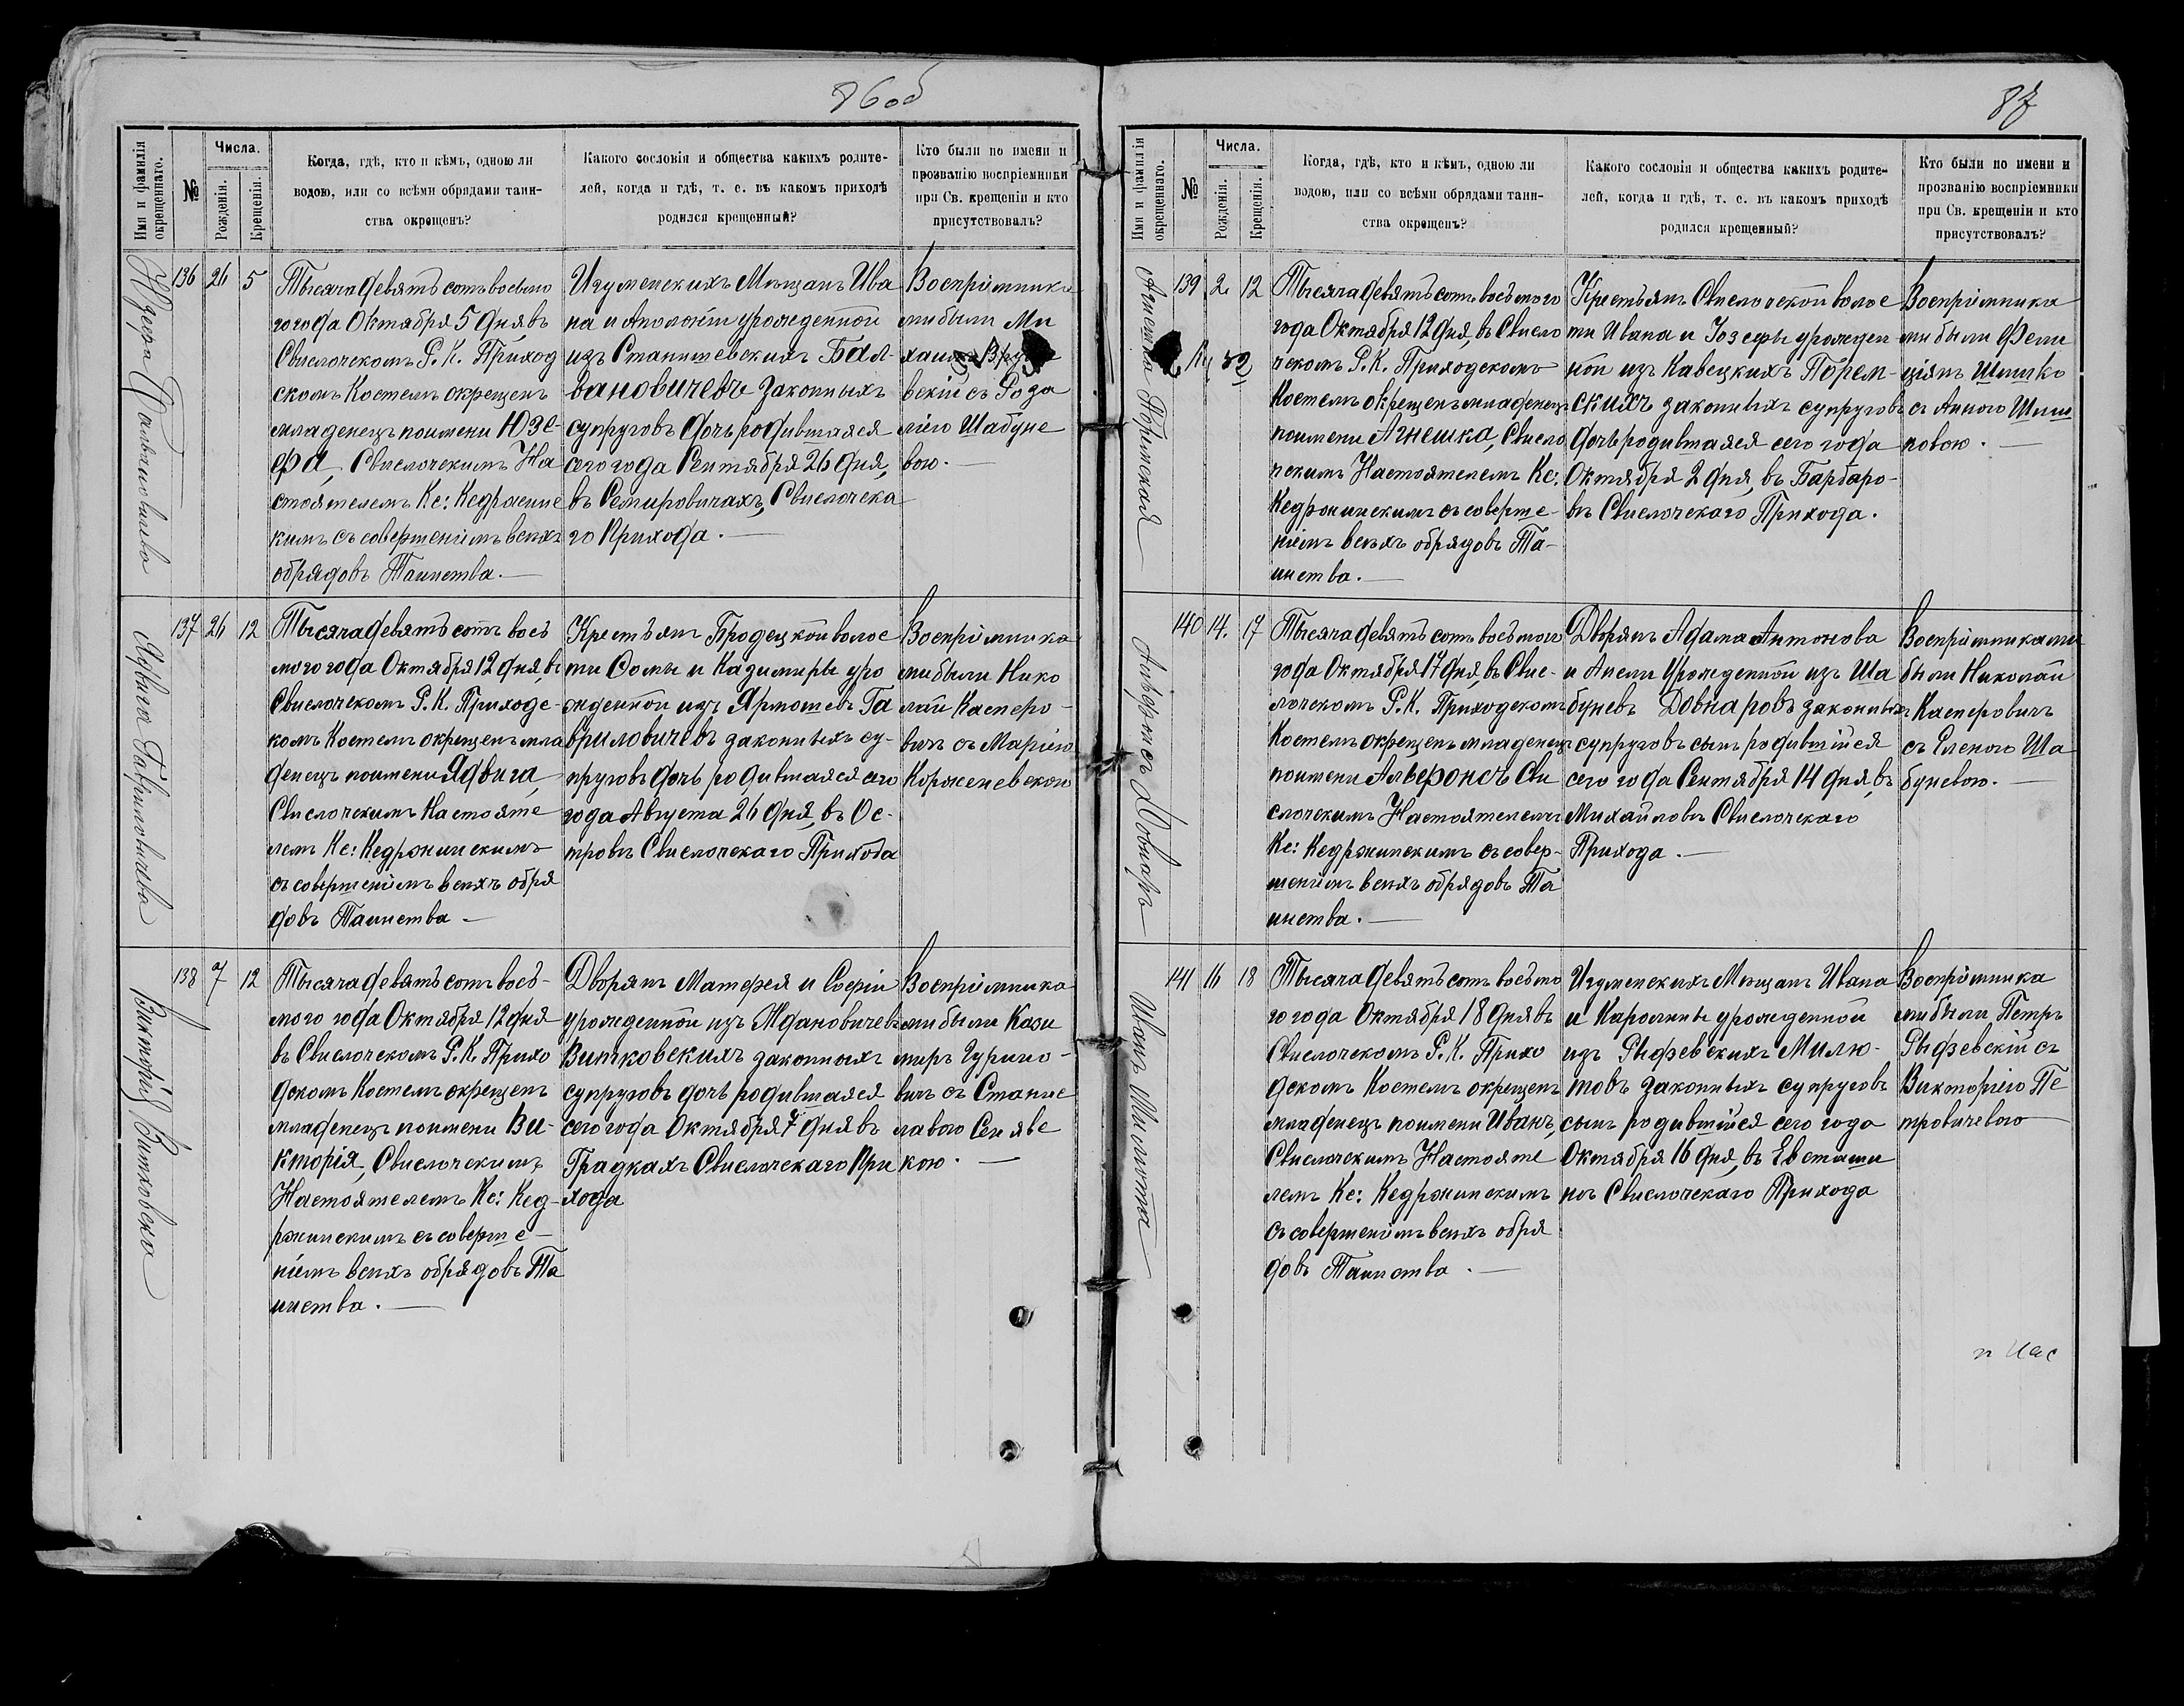 86об
Имя и фамилія окрещеннаго.
№
Числа.
Рожденія.
Крещенія.
Когда, гдѣ, кто и кѣмъ, одною ли
водою, или со всѣми обрядами таин-
ства окрещенъ?
Какого сословія и общества какихъ родите-
лей, когда и гдѣ, т. е. въ какомъ приходѣ
родился крещенный?
Кто были по имени и
прозванію воспріемники
при Св. крещеніи и кто
присутствовалъ?
Юзефа Бальвановичева
136 26 5
Тысяча девятьсотъ восьмо
го года Октября 5 дня въ
Свислочскомъ Р. К. Приход
скомъ Костелѣ окрещенъ
младенецъ по имени Юзе-
фа, Свислочскимъ На
стоятелемъ Кс: Кедржинс
кимъ съ совершеніемъ всѣхъ
обрядовъ Таинства.
Игуменскихъ Мѣщанъ Ива
на и Аполоніи урожденной
изъ Станишевскихъ Бал-
вановичевъ законныхъ
супруговъ дочь родившаяся
сего года Сентября 26 дня,
въ Семировичахъ, Свислочска
го Прихода.
Воспріемника
ми были Ми
хаилъ
вскій съ Роза
ліею Шабуне
вою.
Ядвига Гавриловичева
137 26 12
Тысяча девятьсотъ вось
мого года Октября 12 дня, въ
Свислочскомъ Р. К. Приходс-
комъ Костелѣ окрещенъ мла
денецъ по имени Ядвига,
Свислочскимъ Настояте
лемъ Кс: Кедржинскимъ
съ совершеніемъ всѣхъ обря
довъ Таинства
Крестьянъ Бродецкой волос
ти Ѳомы и Казимиры уро
жденной изъ Ярмошевъ Га
вриловичевъ законныхъ су-
пруговъ дочь родившаяся сего
года Августа 26 дня, въ Ос-
тровѣ Свислочскаго Прихода
Воспріемника
ми были Нико
лай Касперо-
вичъ съ Маріею
Корженевскою
Викторія Витковска
138 7 12
Тысяча девятьсотъ вось-
мого года Октября 12 дня
въ Свислочскомъ Р. К. Прихо
дскомъ Костелѣ окрещенъ
младенецъ по имени Ви-
кторія, Свислочскимъ
Настоятелемъ Кс: Кед-
ржинскимъ съ соверше-
ніемъ всѣхъ обрядовъ Та
инства.
Дворянъ Матфея и Софіи
урожденной изъ Ждановичевъ
Витковскихъ законныхъ
супруговъ дочь родившаяся
сего года Октября 7 дня въ
Градкахъ Свислочскаго При
хода
Воспріемника
ми были Кази
миръ Гурино-
вичъ съ Станис
лавою Сенявс
кою.
87
Имя и фамилія окрещеннаго.
№
Числа.
Рожденія.
Крещенія.
Когда, гдѣ, кто и кѣмъ, одною ли
водою, или со всѣми обрядами таин-
ства окрещенъ?
Какого сословія и общества какихъ родите-
лей, когда и гдѣ, т. е. въ какомъ приходѣ
родился крещенный?
Кто были по имени и
прозванію воспріемники
при Св. крещеніи и кто
присутствовалъ?
Агнешка Поремская
139 2 12
Тысяча девятьсотъ восьмого
года Октября 12 дня, въ Свисло
чскомъ Р. К. Приходскомъ
Костелѣ окрещенъ младенецъ
по имени Агнешка, Свисло
чскимъ Настоятелемъ Кс:
Кедржинскимъ съ соверше-
ніемъ всѣхъ обрядовъ Та-
инства.
Крестьянъ Свислочской волос
ти Ивана и Іозефы урожден
ной изъ Кавецкихъ Порем-
скихъ законныхъ супруговъ
дочь родившаяся сего года
Октября 2 дня, въ Барбаро-
вѣ Свислочскаго Прихода.
Воспріемника
ми были Фели
ціянъ Шишко
съ Анною Шиш
ковою.
Альфонсъ Довнаръ
140 14. 17
Тысяча девятьсотъ восьмого
года Октября 17 дня, въ Свис-
лочскомъ Р. К. Приходскомъ
Костелѣ окрещенъ младенецъ
по имени Альфонсъ Сви
слочскимъ Настоятелемъ
Кс: Кедржинскимъ съ совер-
шеніемъ всѣхъ обрядовъ Та
инства.
Дворянъ Адама Антонова
и Анели Урожденной изъ Ша
буневъ Довнаровъ законныхъ
супруговъ сынъ родившійся
сего года Сентября 14 дня, въ
Михайловѣ Свислочскаго
Прихода.
Воспріемниками
были Николай
Касперовичъ
съ Еленою Ша
буневою.
Иванъ Милюта
141 16 18
Тысяча девятьсотъ восьмо
го года Октября 18 дня въ
Свислочскомъ Р. К. Прихо
дскомъ Костелѣ окрещенъ
младенецъ по имени Иванъ,
Свислочскимъ Настояте
лемъ Кс: Кедржинскимъ
съ совершеніемъ всѣхъ обря
довъ Таинства.
Игуменскихъ Мѣщанъ Ивана
и Каролины урожденной
изъ Рыфевскихъ Милю-
товъ законныхъ супруговъ
сынъ родившійся сего года
Октября 16 дня, въ Евсташи
нѣ Свислочскаго Прихода
Воспріемника
ми были Петръ
Рыфевскій съ
Викторіею Пе
тровичевою